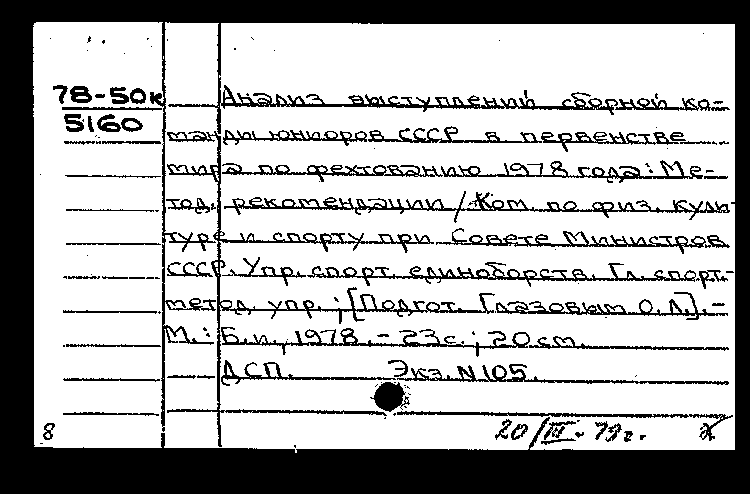 78-50к
5160
Анализ выступлений сборной ко-
манды юниоров СССР в первенстве
мира по фехтованию 1978 года: Ме-
тод. рекомендации / Ком. по физ. куль-
туре и спорту при Совете Министров
СССР. Упр. спорт. единоборств. Гл. спорт.-
метод. упр.; [Подгот. Глазовым О.Л.]. -
М.: Б.и., 1978. - 23с.; 20см.
ДСП. Экз. N105.
8 20/III-79г.